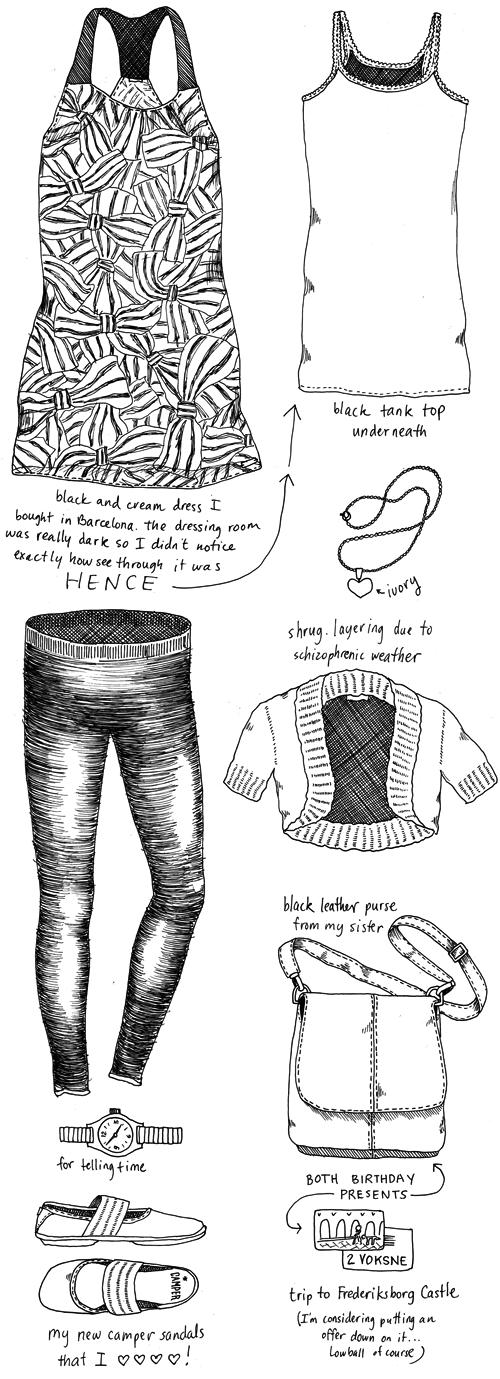 black and cream dress I
bought in Barcelona. the dressing room
was really dark so I didn't notice
exactly how see through it was
HENCE
black tank top
underneath
ivory
shrug. layering due to
schizophrenic weather
black leather purse
from my sister
for telling time
BOTH BIRTHDAY
PRESENTS
2 VOKSNE
CAMPER
my new camper sandals
that I ♡ ♡ ♡ ♡ !
trip to Frederiksborg Castle
(I'm considering putting an
offer down on it...
lowball of course)